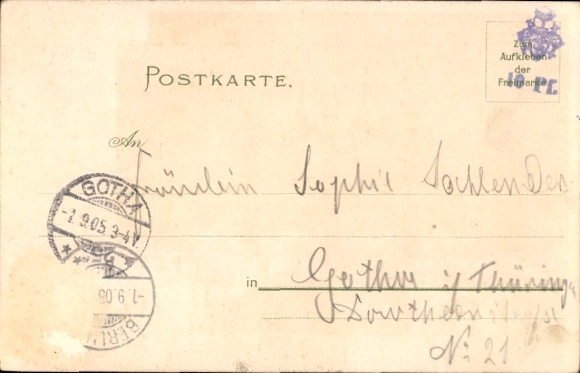 POSTKARTE.
Zum
Aufkleben
der
Freimarke
10 Pf.
An
Fräulein Sophie
in Gotha i/Thüringen
No 21
GOTHA
-1.9.05.3-4N
-1.9.05
BERLIN